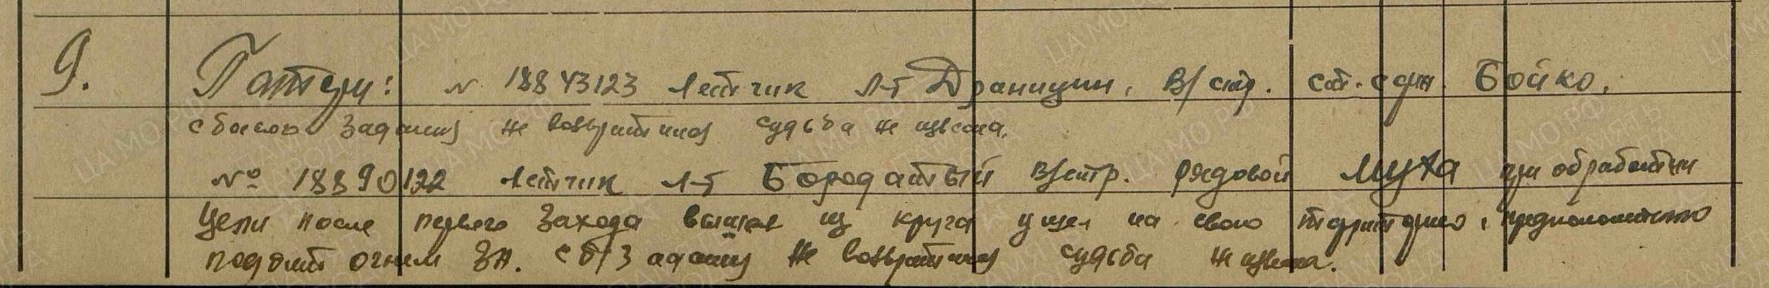 9. Потери: № 18843123 Летчик Л-т Драницин, В/стр. сот. сдн. Бойко,
с боевого задания не возвратились судьба не извесна.
№ 18890122 Летчик Л-т Бородатый В/стр. рядовой Муха при обработки
Цели после первого захода вышел из круга ушел на свою территорию, предположительно
подбит огнем ЗА. с б/задания не возвратились судьба не извесна.